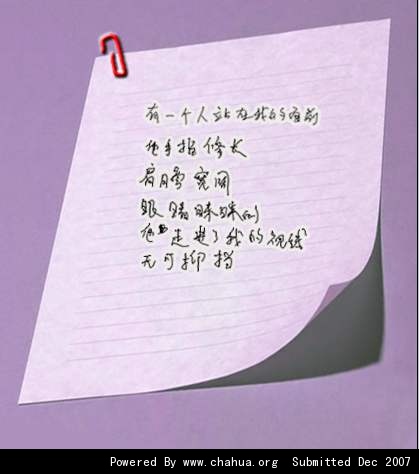 有一个人站在我的面前
他手指修长
肩膀宽阔
眼睛眯眯的
他走进了我的视线
无可抑挡
Powered By www.chahua.org Submitted Dec 2007